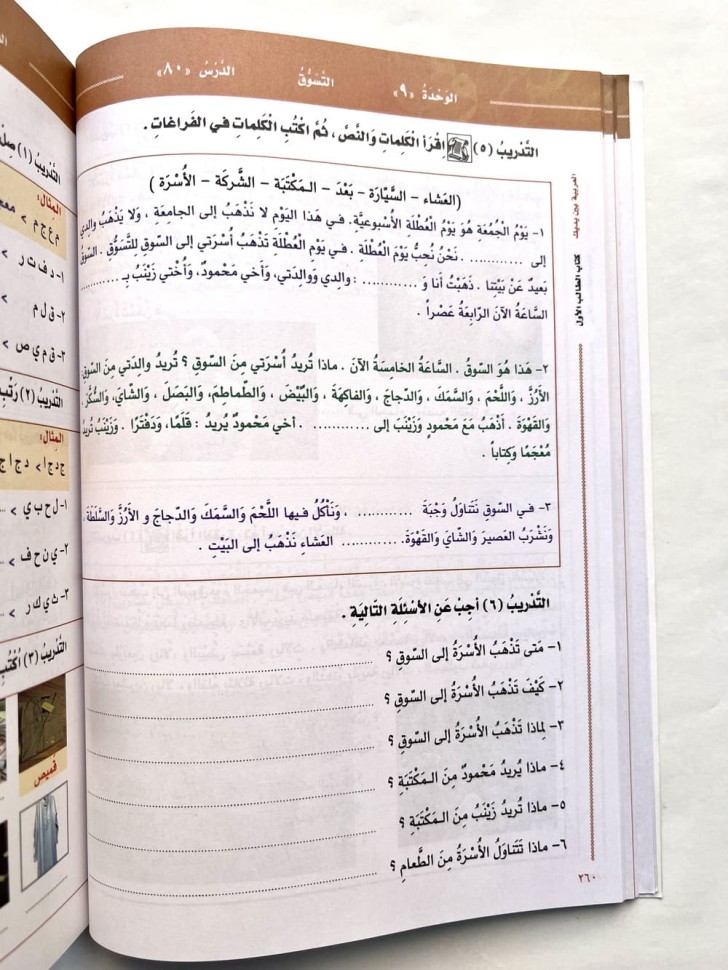 الوَحْدَةُ «٩» التَّسَوُّقُ الدَّرْسُ «٨٠»
التَّدْرِيبُ (٥) اِقْرَأِ الْكَلِماتِ وَالنَّصَّ ، ثُمَّ اكْتُبِ الْكَلِماتِ في الفَراغاتِ .
(العَشاء – السَّيّارَة – بَعْدَ – الـمَكْتَبَة – الشَّرِكَة – الأُسْرَة )
١- يَوْمُ الْجُمُعَةِ هُوَ يَوْمُ الْعُطْلَةِ الأُسْبوعِيَّةِ. في هَذا اليَوْمِ لا نَذْهَبُ إلى الجامِعَةِ ، وَلا يَذْهَبُ والِدي
إلى ............ . نَحْنُ نُحِبُّ يَوْمَ الْعُطْلَةِ . في يَوْمِ الْعُطْلَةِ تَذْهَبُ أُسْرَتي إلى السّوقِ لِلتَّسَوُّقِ . السّوقُ
بَعيدٌ عَنْ بَيْتِنا . ذَهَبْتُ أنا وَ ............ : والِدي وَوالِدَتي، وَأخي مَحْمودٌ، وَأُخْتي زَيْنَبُ بِـ ............
السّاعَةُ الآنَ الرّابِعَةُ عَصْراً .
٢- هَذا هُوَ السّوقُ . السّاعَةُ الخامِسَةُ الآنَ . ماذا تُريدُ أُسْرَتي مِنَ السّوقِ ؟ تُريدُ والِدَتي مِنَ السّوقِ:
الأرُزَّ ، وَاللَّحْمَ ، وَالسَّمَكَ ، وَالدَّجاجَ ، وَالفاكِهَةَ ، وَالْبَيْضَ ، وَالطَّماطِمَ، وَالبَصَلَ ، وَالشّايَ، وَالسُّكَّرَ ،
وَالقَهْوَةَ . أذْهَبُ مَعَ مَحْمودٍ وَزَيْنَبَ إلى ............ . أخي مَحْمودٌ يُريدُ : قَلَمًا، وَدَفْتَرًا . وَزَيْنَبُ تُريدُ
مُعْجَمًا وَكِتاباً .
٣- في السّوقِ نَتَناوَلُ وَجْبَةَ ............ ، وَنَأْكُلُ فيها اللَّحْمَ وَالسَّمَكَ وَالدَّجاجَ و الأرُزَّ وَالسَّلَطَةَ،
وَنَشْرَبُ العَصيرَ وَالشّايَ وَالقَهْوَةَ. ............ العَشاءِ نَذْهَبُ إلى البَيْتِ .
التَّدْرِيبُ (٦) أجِبْ عَنِ الأسْئِلَةِ التّالِيَةِ .
١- مَتى تَذْهَبُ الأُسْرَةُ إلى السّوقِ ؟
٢- كَيْفَ تَذْهَبُ الأُسْرَةُ إلى السّوقِ ؟
٣- لِماذا تَذْهَبُ الأُسْرَةُ إلى السّوقِ ؟
٤- ماذا يُريدُ مَحْمودٌ مِنَ الـمَكْتَبَةِ ؟
٥- ماذا تُريدُ زَيْنَبُ مِنَ الـمَكْتَبَةِ ؟
٦- ماذا تَتَناوَلُ الأُسْرَةُ مِنَ الطَّعامِ ؟
العربية بين يديك
كتاب الطالب الأول
٢٦٠
التَّدْرِيبُ (١)
المِثال:
م ع ج م >
١- د ف ت ر >
٢- ق ل م >
٣- ق م ي ص >
التَّدْرِيبُ (٢) رَتِّبِ
المِثال:
ج د ج ا > د ج ا ج
١- ل ح ب ي >
٢- ي ن ح ف >
٣- ث ي ك ر >
التَّدْرِيبُ (٣) اُكْتُبِ
قَميص